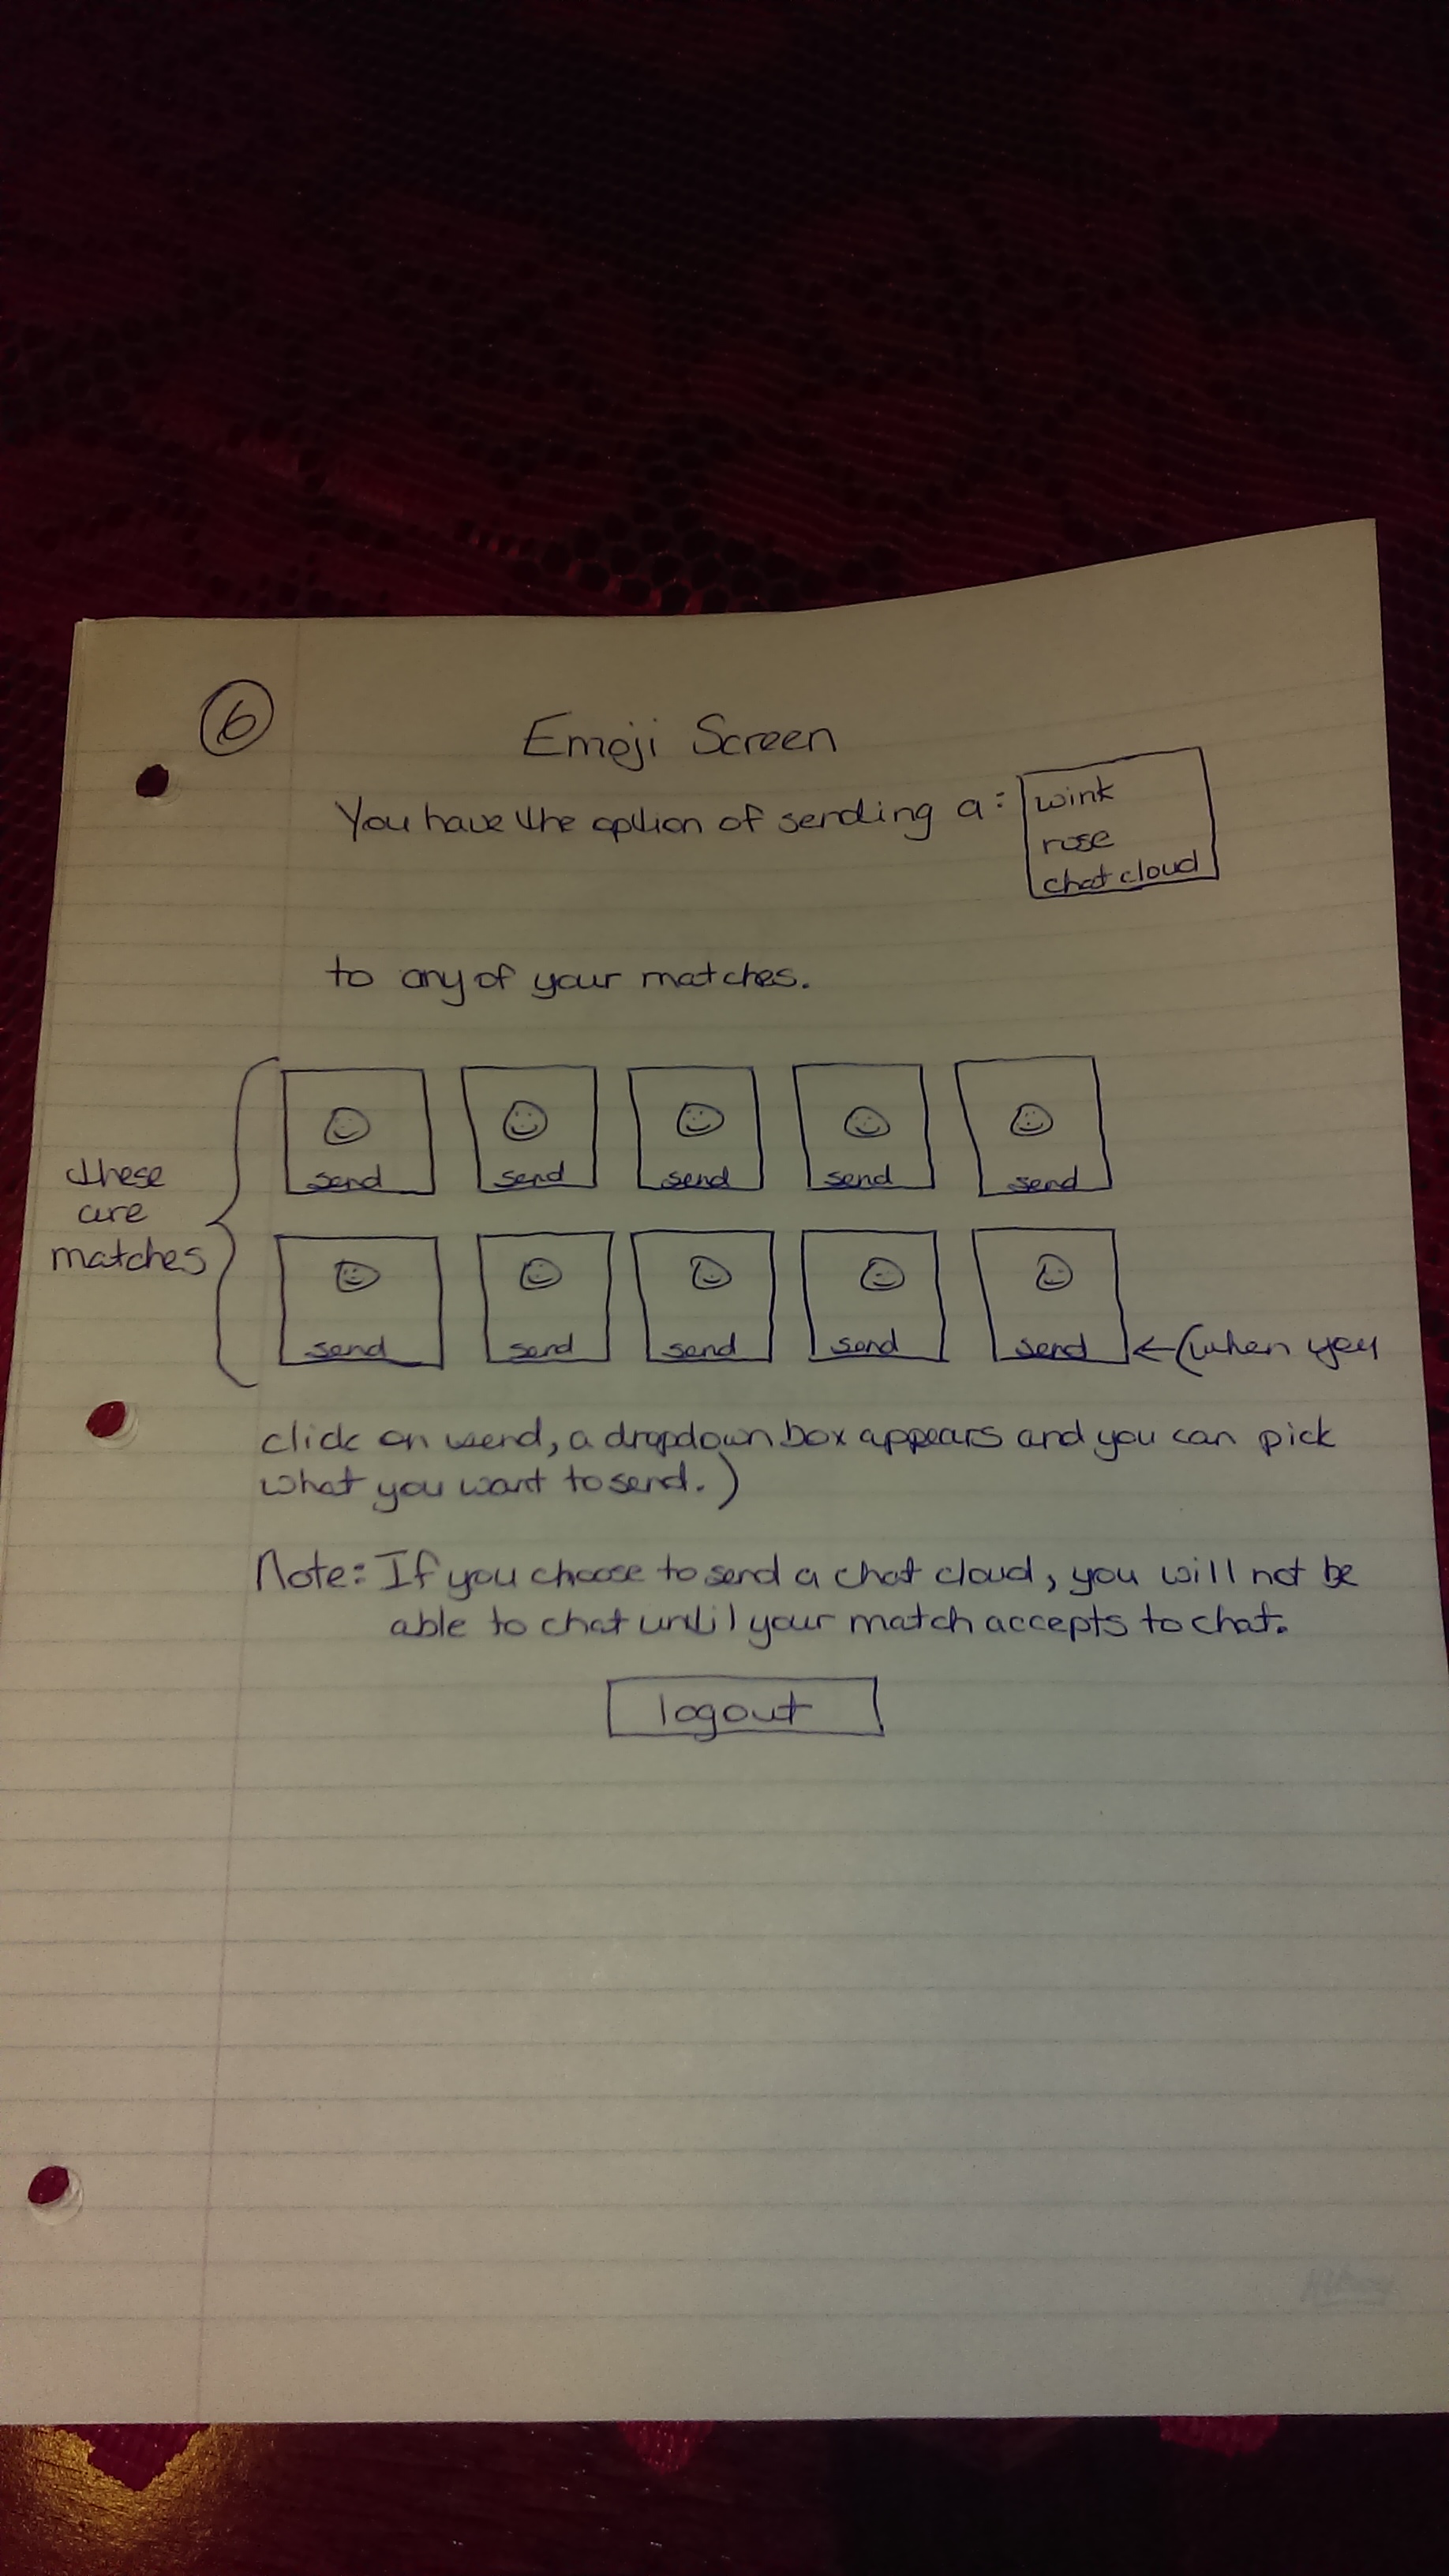 6
Emoji Screen
You have the option of sending a: wink
rose
chat cloud
to any of your matches.
these
are
matches
send send send send send
send send send send send ←(when you
click on send, a dropdown box appears and you can pick
what you want to send.)
Note: If you choose to send a chat cloud, you will not be
able to chat until your match accepts to chat.
logout